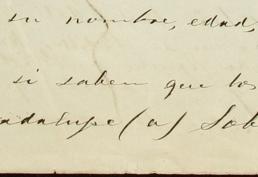 su nombre, edad,
si saben que los
adalupe (a) Sob